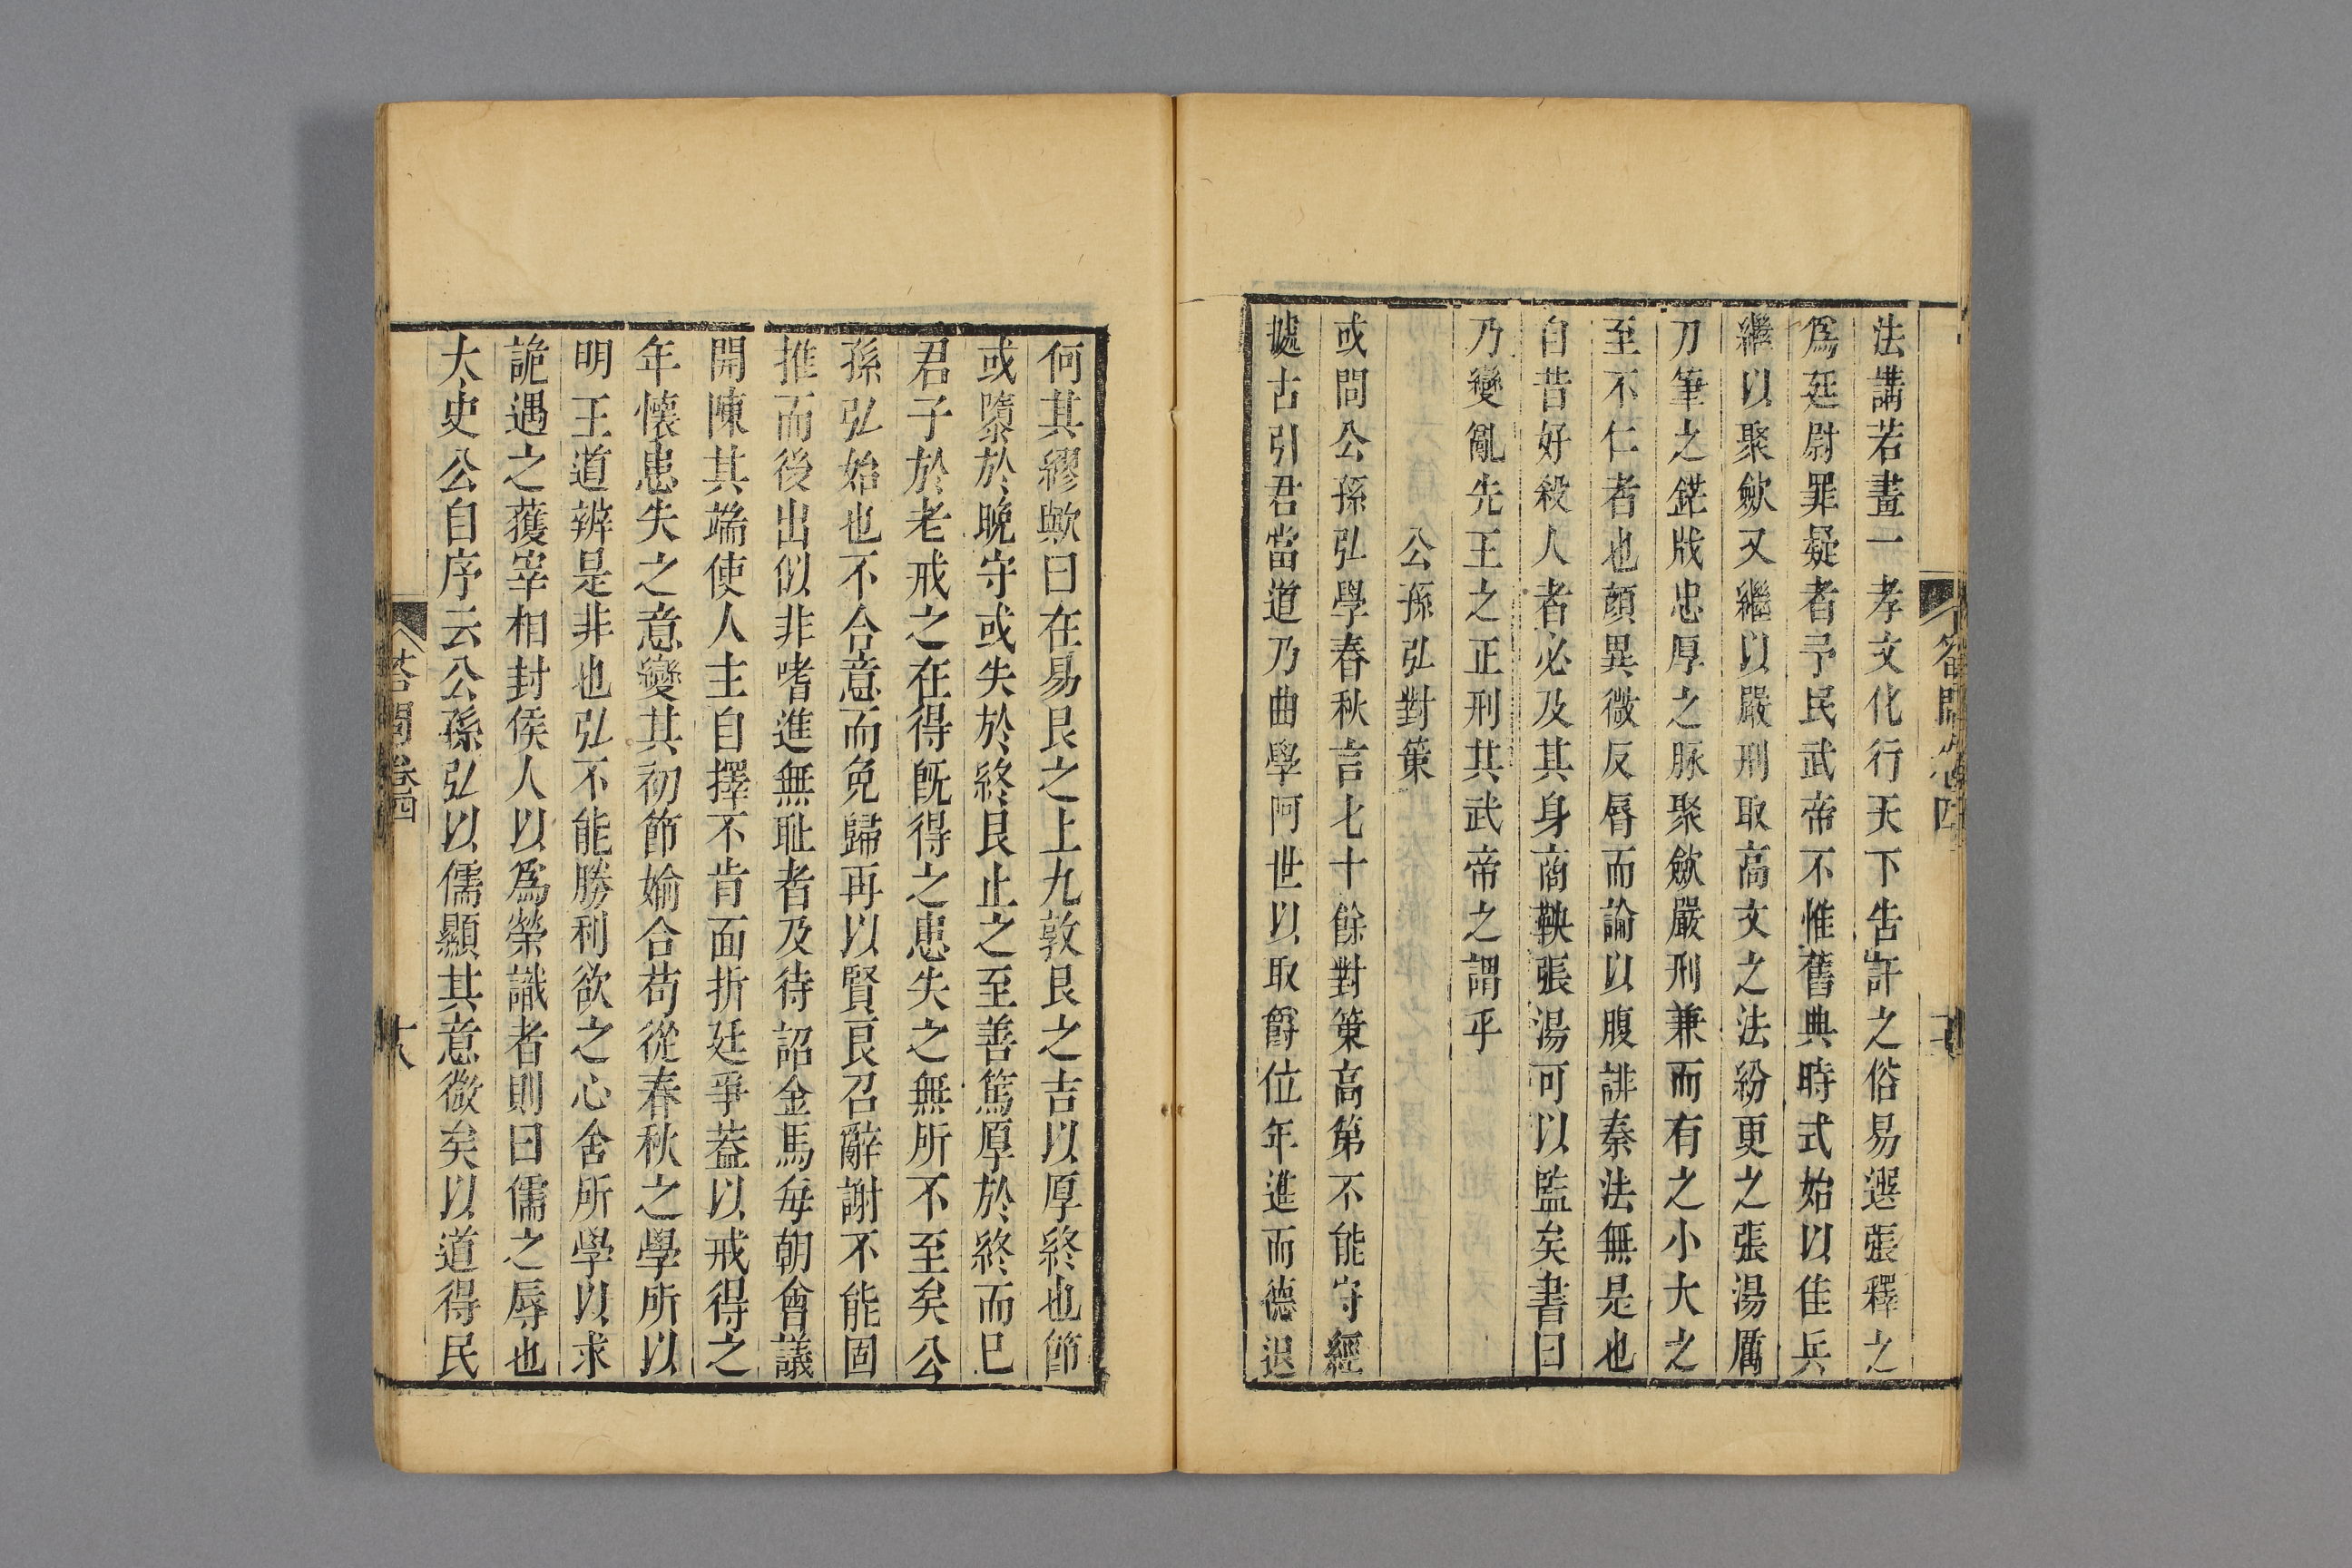 法講若畫一孝文化行天下告訐之俗易選張釋之
爲廷尉罪疑者予民武帝不惟舊典時式始以佳兵
繼以聚斂又繼以嚴刑取高文之法紛更之張湯厲
刀筆之鋩戕忠厚之脉聚斂嚴刑兼而有之小大之
至不仁者也顔異微反脣而論以腹誹秦法無是也
自昔好殺人者必及其身商鞅張湯可以監矣書曰
乃變亂先王之正刑其武帝之謂乎
公孫弘對策
或問公孫弘學春秋言七十餘對策高第不能守經
據古引君當道乃曲學阿世以取爵位年進而德退
何其繆歟曰在易艮之上九敦艮之吉以厚終也節
或隳於晚守或失於終艮止之至善篤厚於終而已
君子於老戒之在得既得之患失之無所不至矣公
孫弘始也不合意而免歸再以賢良召辭謝不能固
推而後出似非嗜進無耻者及待詔金馬每朝會議
開陳其端使人主自擇不肯面折廷爭葢以戒得之
年懷患失之意變其初節婾合苟從春秋之學所以
明王道辨是非也弘不能勝利欲之心舍所學以求
詭遇之獲宰相封侯人以爲榮識者則曰儒之辱也
大史公自序云公孫弘以儒顯其意微矣以道得民
荅問卷四
十八